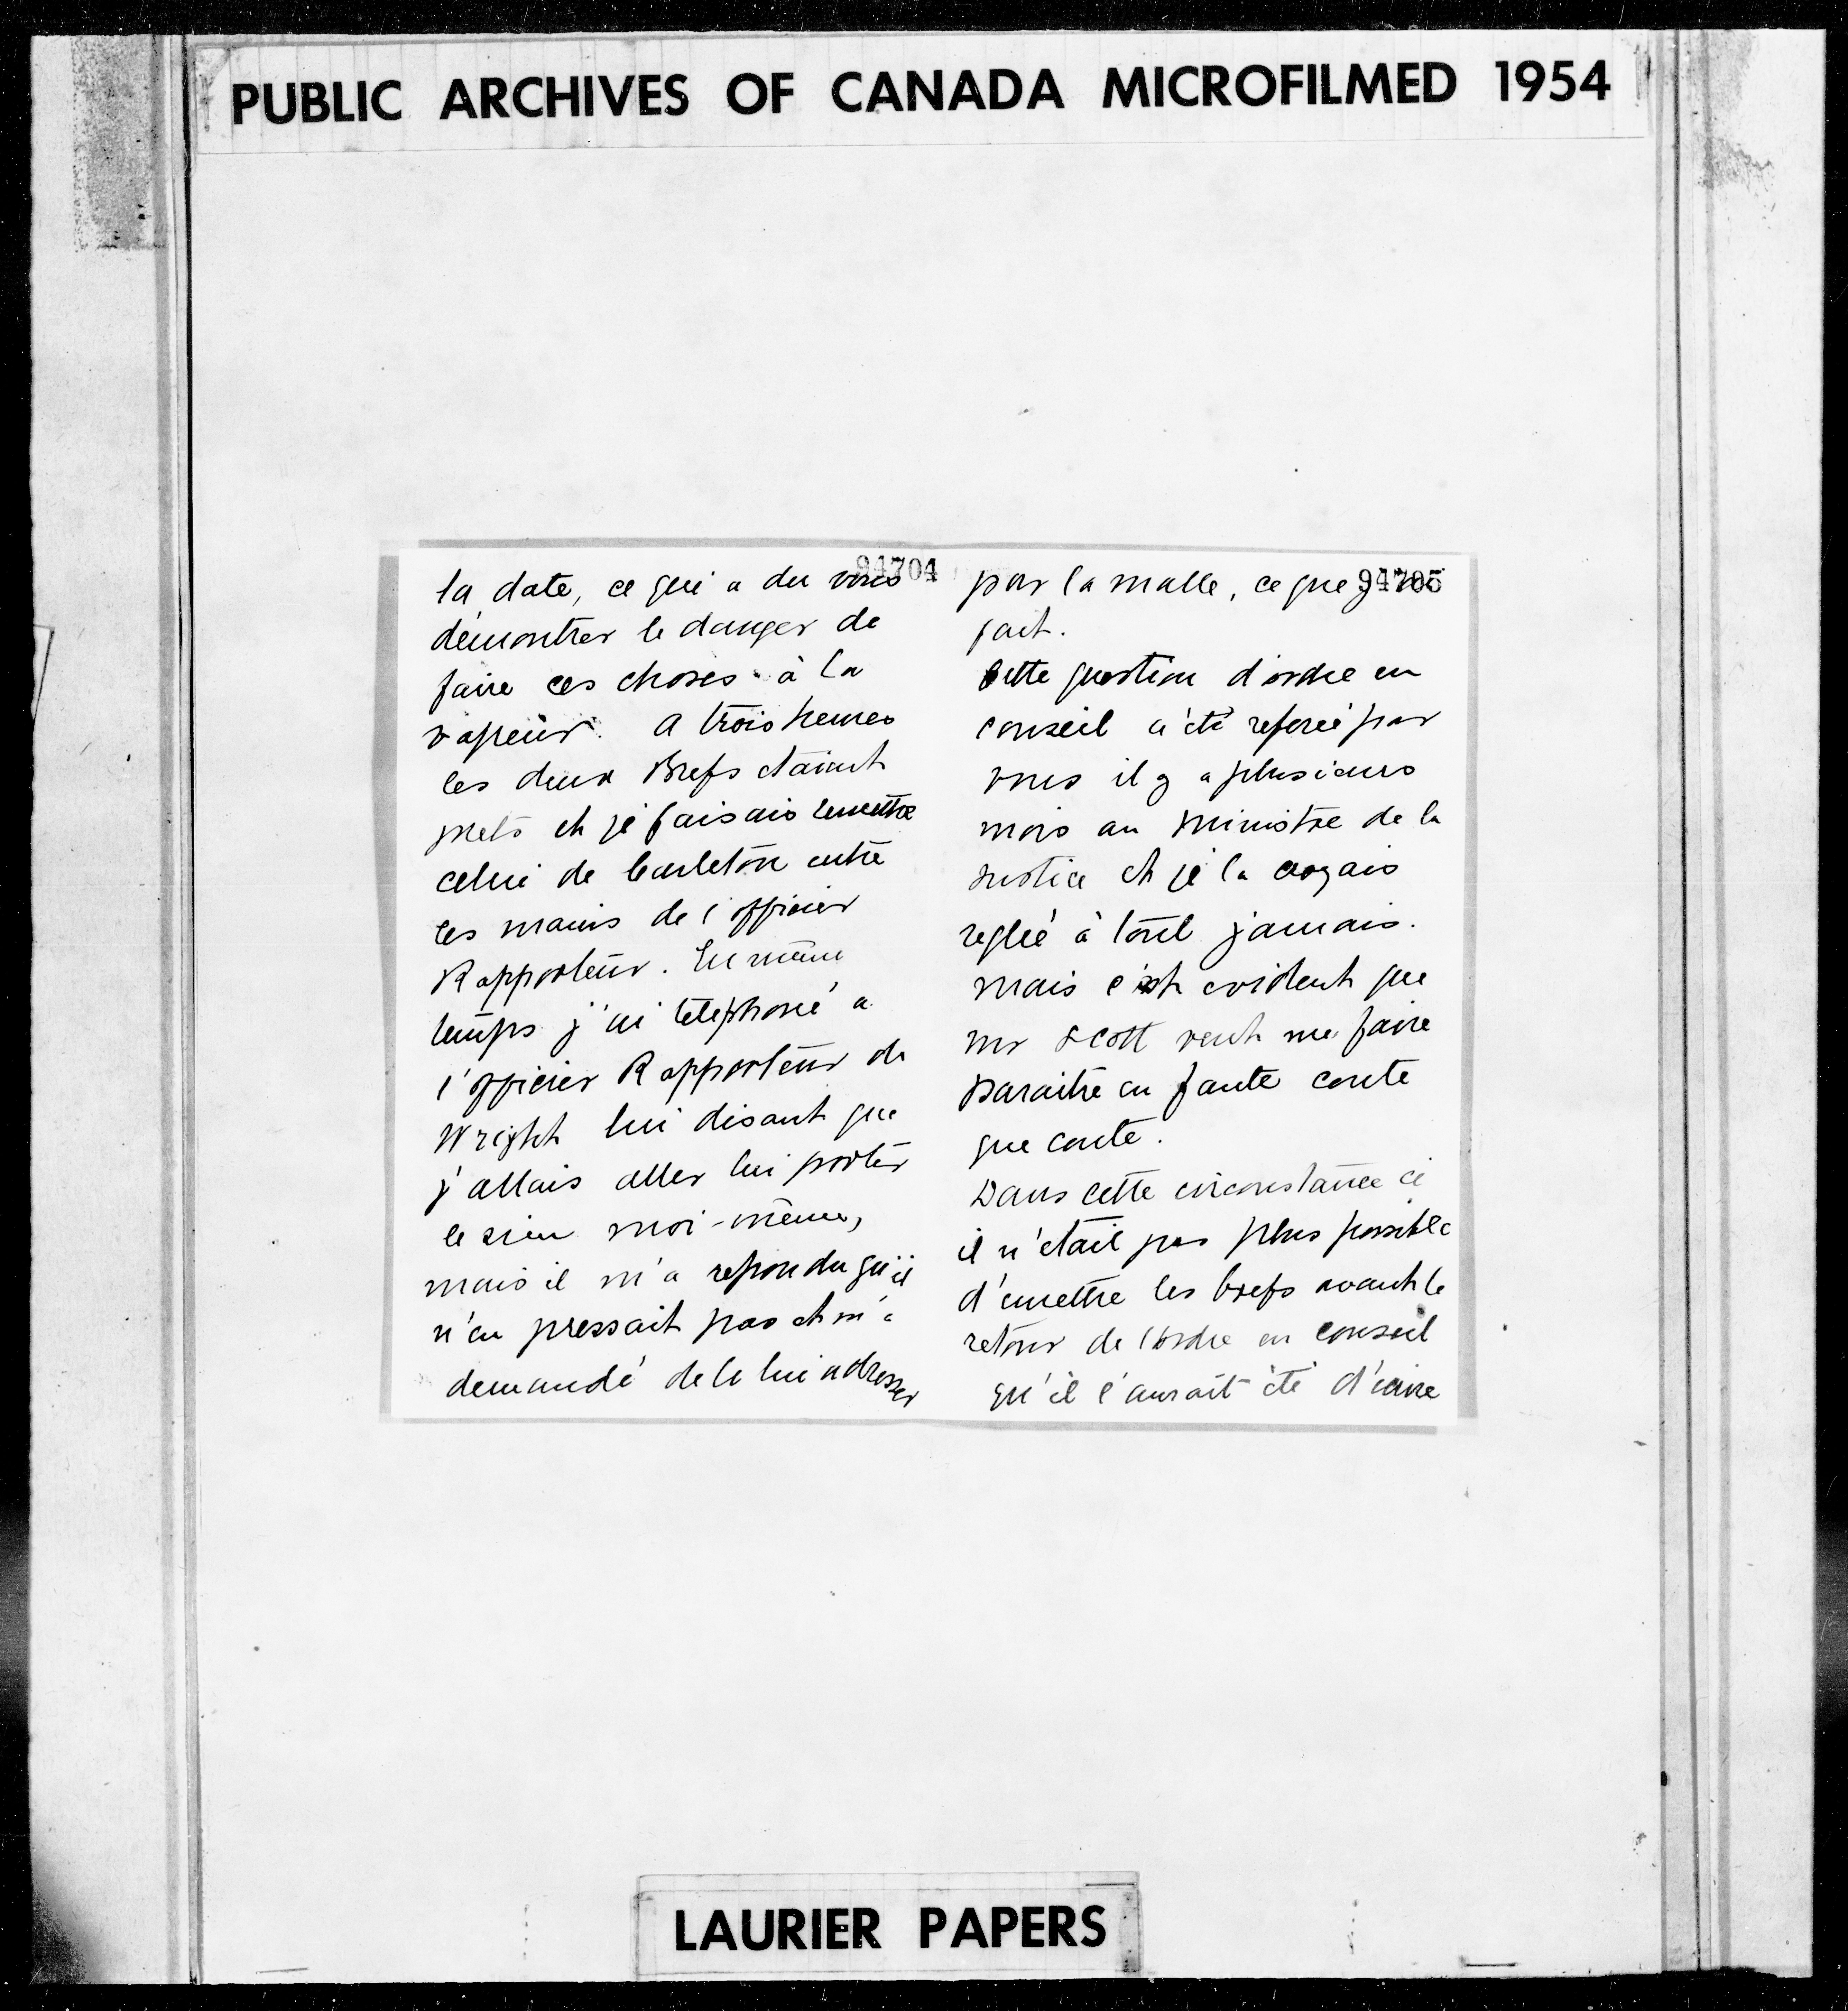 PUBLIC ARCHIVES OF CANADA MICROFILMED 1954
94704
la date, ce qui a du vous
démontrer le danger de
faire ces choses à la
vapeur. A trois heures
les deux Brefs etaient
prets et je faisais remettre
celui de Carleton entre
les mains de l'officier
Rapporteur. En même
temps j'ai telephoné a
l'officier Rapporteur de
Wright lui disant que
j'allais aller lui porter
le sien moi-même,
mais il m'a repondu qu'il
n'en pressait pas et m'a
demandé de le lui adresser
94705
par la malle, ce que j'ai
fait.
Cette question d'ordre en
conseil a été referée par
vous il y a plusieurs
mois au Ministre de la
Justice et je la croyais
reglée à tout jamais.
Mais c'est evident que
Mr Scott veut me faire
paraitre en faute coute
que coute.
Dans cette circonstance ci
il n'était pas plus possible
d'emettre les brefs avant le
retour de l'ordre en conseil
qu'il l'aurait été d'ecrire
LAURIER PAPERS